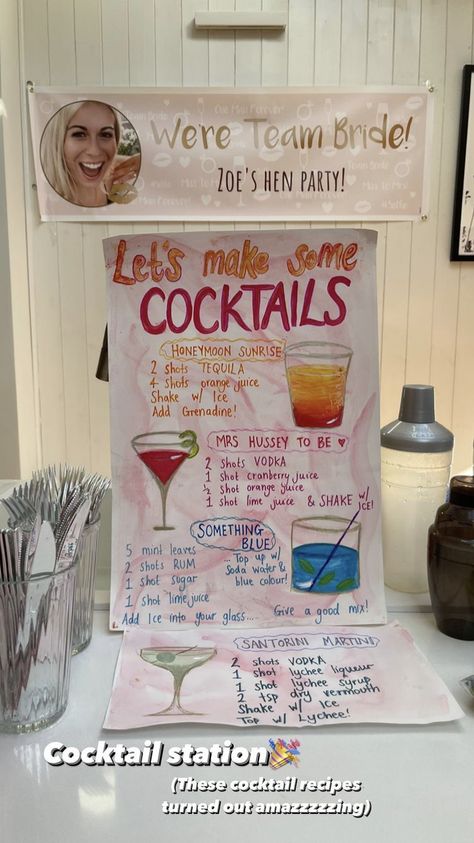 We're Team Bride!
Zoe's Hen Party!
Let's make some
COCKTAILS
HONEYMOON SUNRISE
2 shots TEQUILA
4 shots orange juice
Shake w/ Ice
Add Grenadine!
MRS HUSSEY TO BE
2 shots VODKA
1 shot cranberry juice
½ shot orange juice
1 shot lime juice & SHAKE w/ ICE!
SOMETHING
BLUE
5 mint leaves
2 shots RUM
1 shot sugar
1 shot lime juice
Add Ice into your glass...
... Top up w/
Soda water &
blue colour!
Give a good mix!
SANTORINI MARTINI
2 shots VODKA
1 shot lychee liqueur
1 shot lychee syrup
2 tsp dry vermouth
Shake w/ Ice
Top w/ Lychee!
Cocktail station🎉
(These cocktail recipes
turned out amazzzzzing)